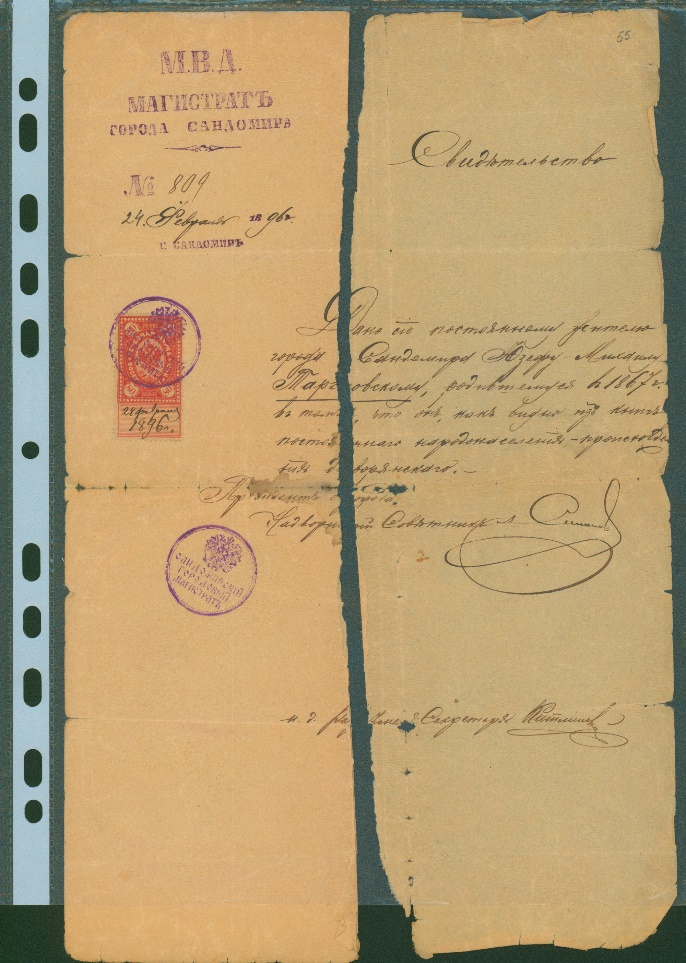 55
М.В.Д.
МАГИСТРАТЪ
ГОРОДА САНДОМИРА
№ 809
24 Февраля 1896 г.
г. САНДОМИРЪ
Свидѣтельство
Дано сіе постоянному жителю
города Сандомира Юзефу
Тарговскому, родившемуся въ 1867 г.
въ томъ, что онъ, какъ видно изъ книгъ
постояннаго народонаселенія – происхожде
нія дворянскаго. –
24 февраля
1896 г.
Президентъ города,
Надворный Совѣтникъ
САНДОМІРСКІЙ
ГОРОДОВЫЙ
МАГИСТРАТЪ
и. д. Секретаря